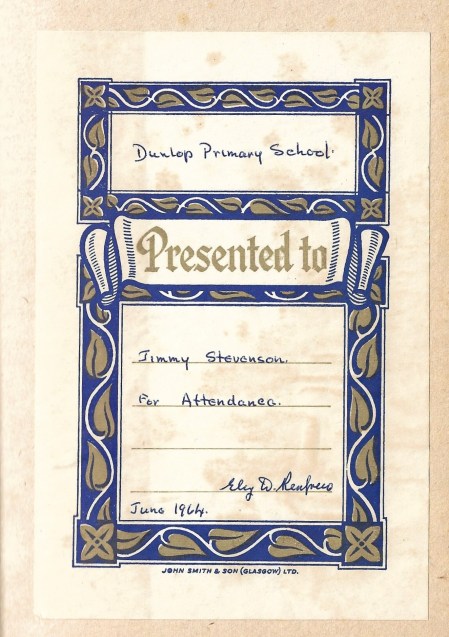 Dunlop Primary School.
Presented to
Jimmy Stevenson.
For Attendance.
Eliz D. Renfrew
June 1964.
JOHN SMITH & SON (GLASGOW) LTD.